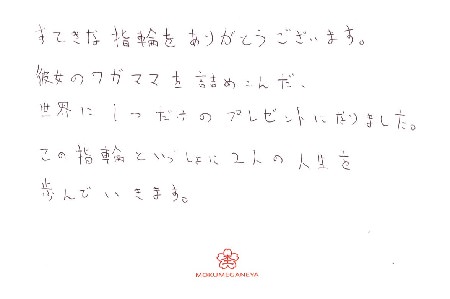 すてきな指輪をありがとうございます。
彼女のワガママを詰めこんだ、
世界に1つだけのプレゼントになりました。
この指輪といっしょに2人の人生を
歩んでいきます。
MOKUMEGANEYA